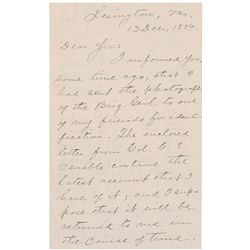 Lexington, Va.,
13 Dec., 1894.
Dear Sir:
I informed you,
some time ago, that I
had sent the photograph
of the Brig. Genl. to one
of my friends for identi-
fication. The enclosed
letter from Col. C. S.
Venable contains the
latest account that I
have of it; and I sup-
pose that it will be
returned to me in
the course of time.